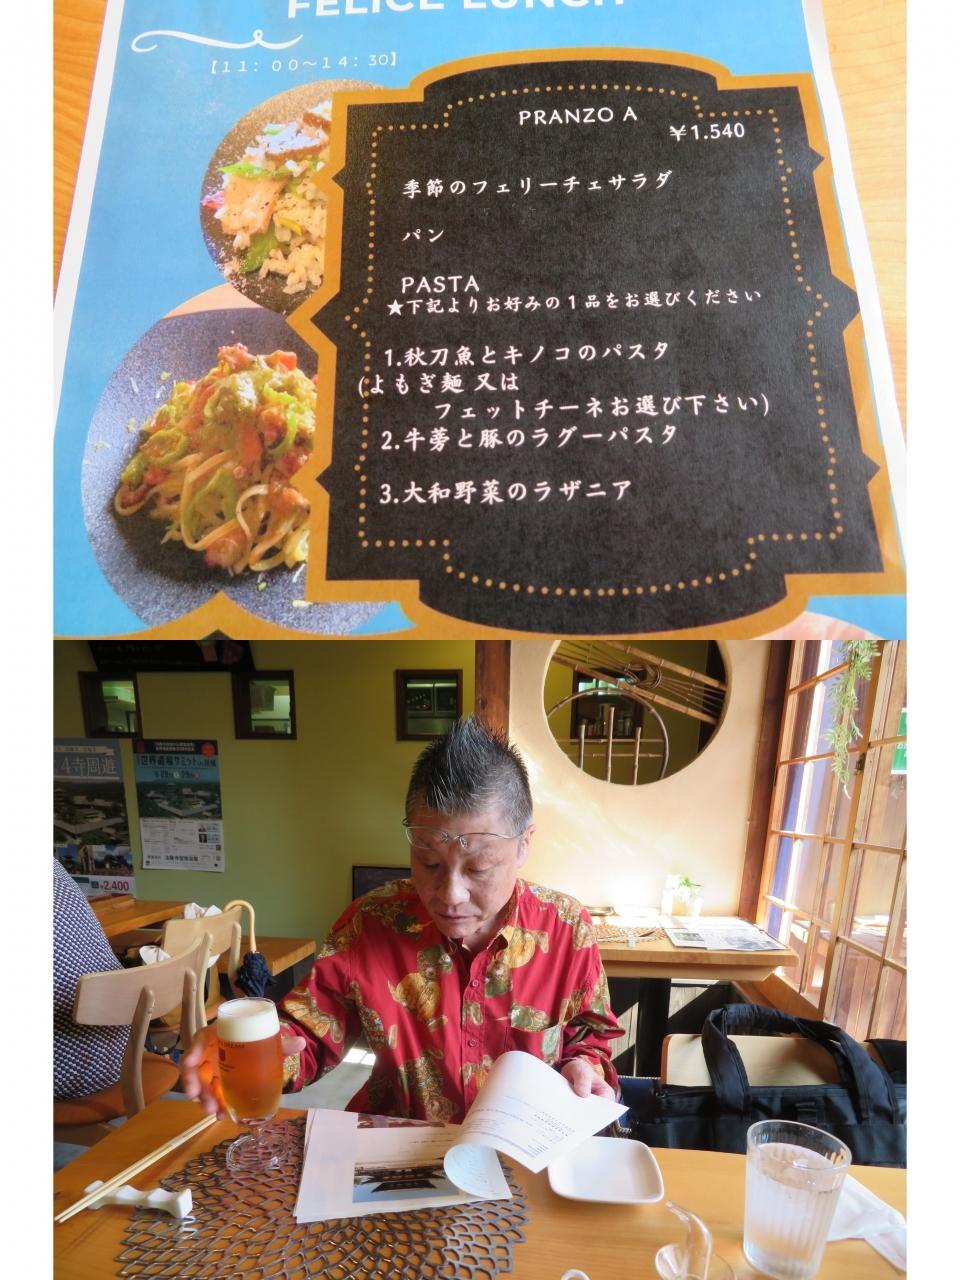 FELICE LUNCH
【11：00〜14：30】
PRANZO A
￥1.540
季節のフェリーチェサラダ
パン
PASTA
★下記よりお好みの１品をお選びください
1.秋刀魚とキノコのパスタ
(よもぎ麺 又は
フェットチーネお選び下さい)
2.牛蒡と豚のラグーパスタ
3.大和野菜のラザニア
4寺周遊
世界遺産サミット
¥2,400